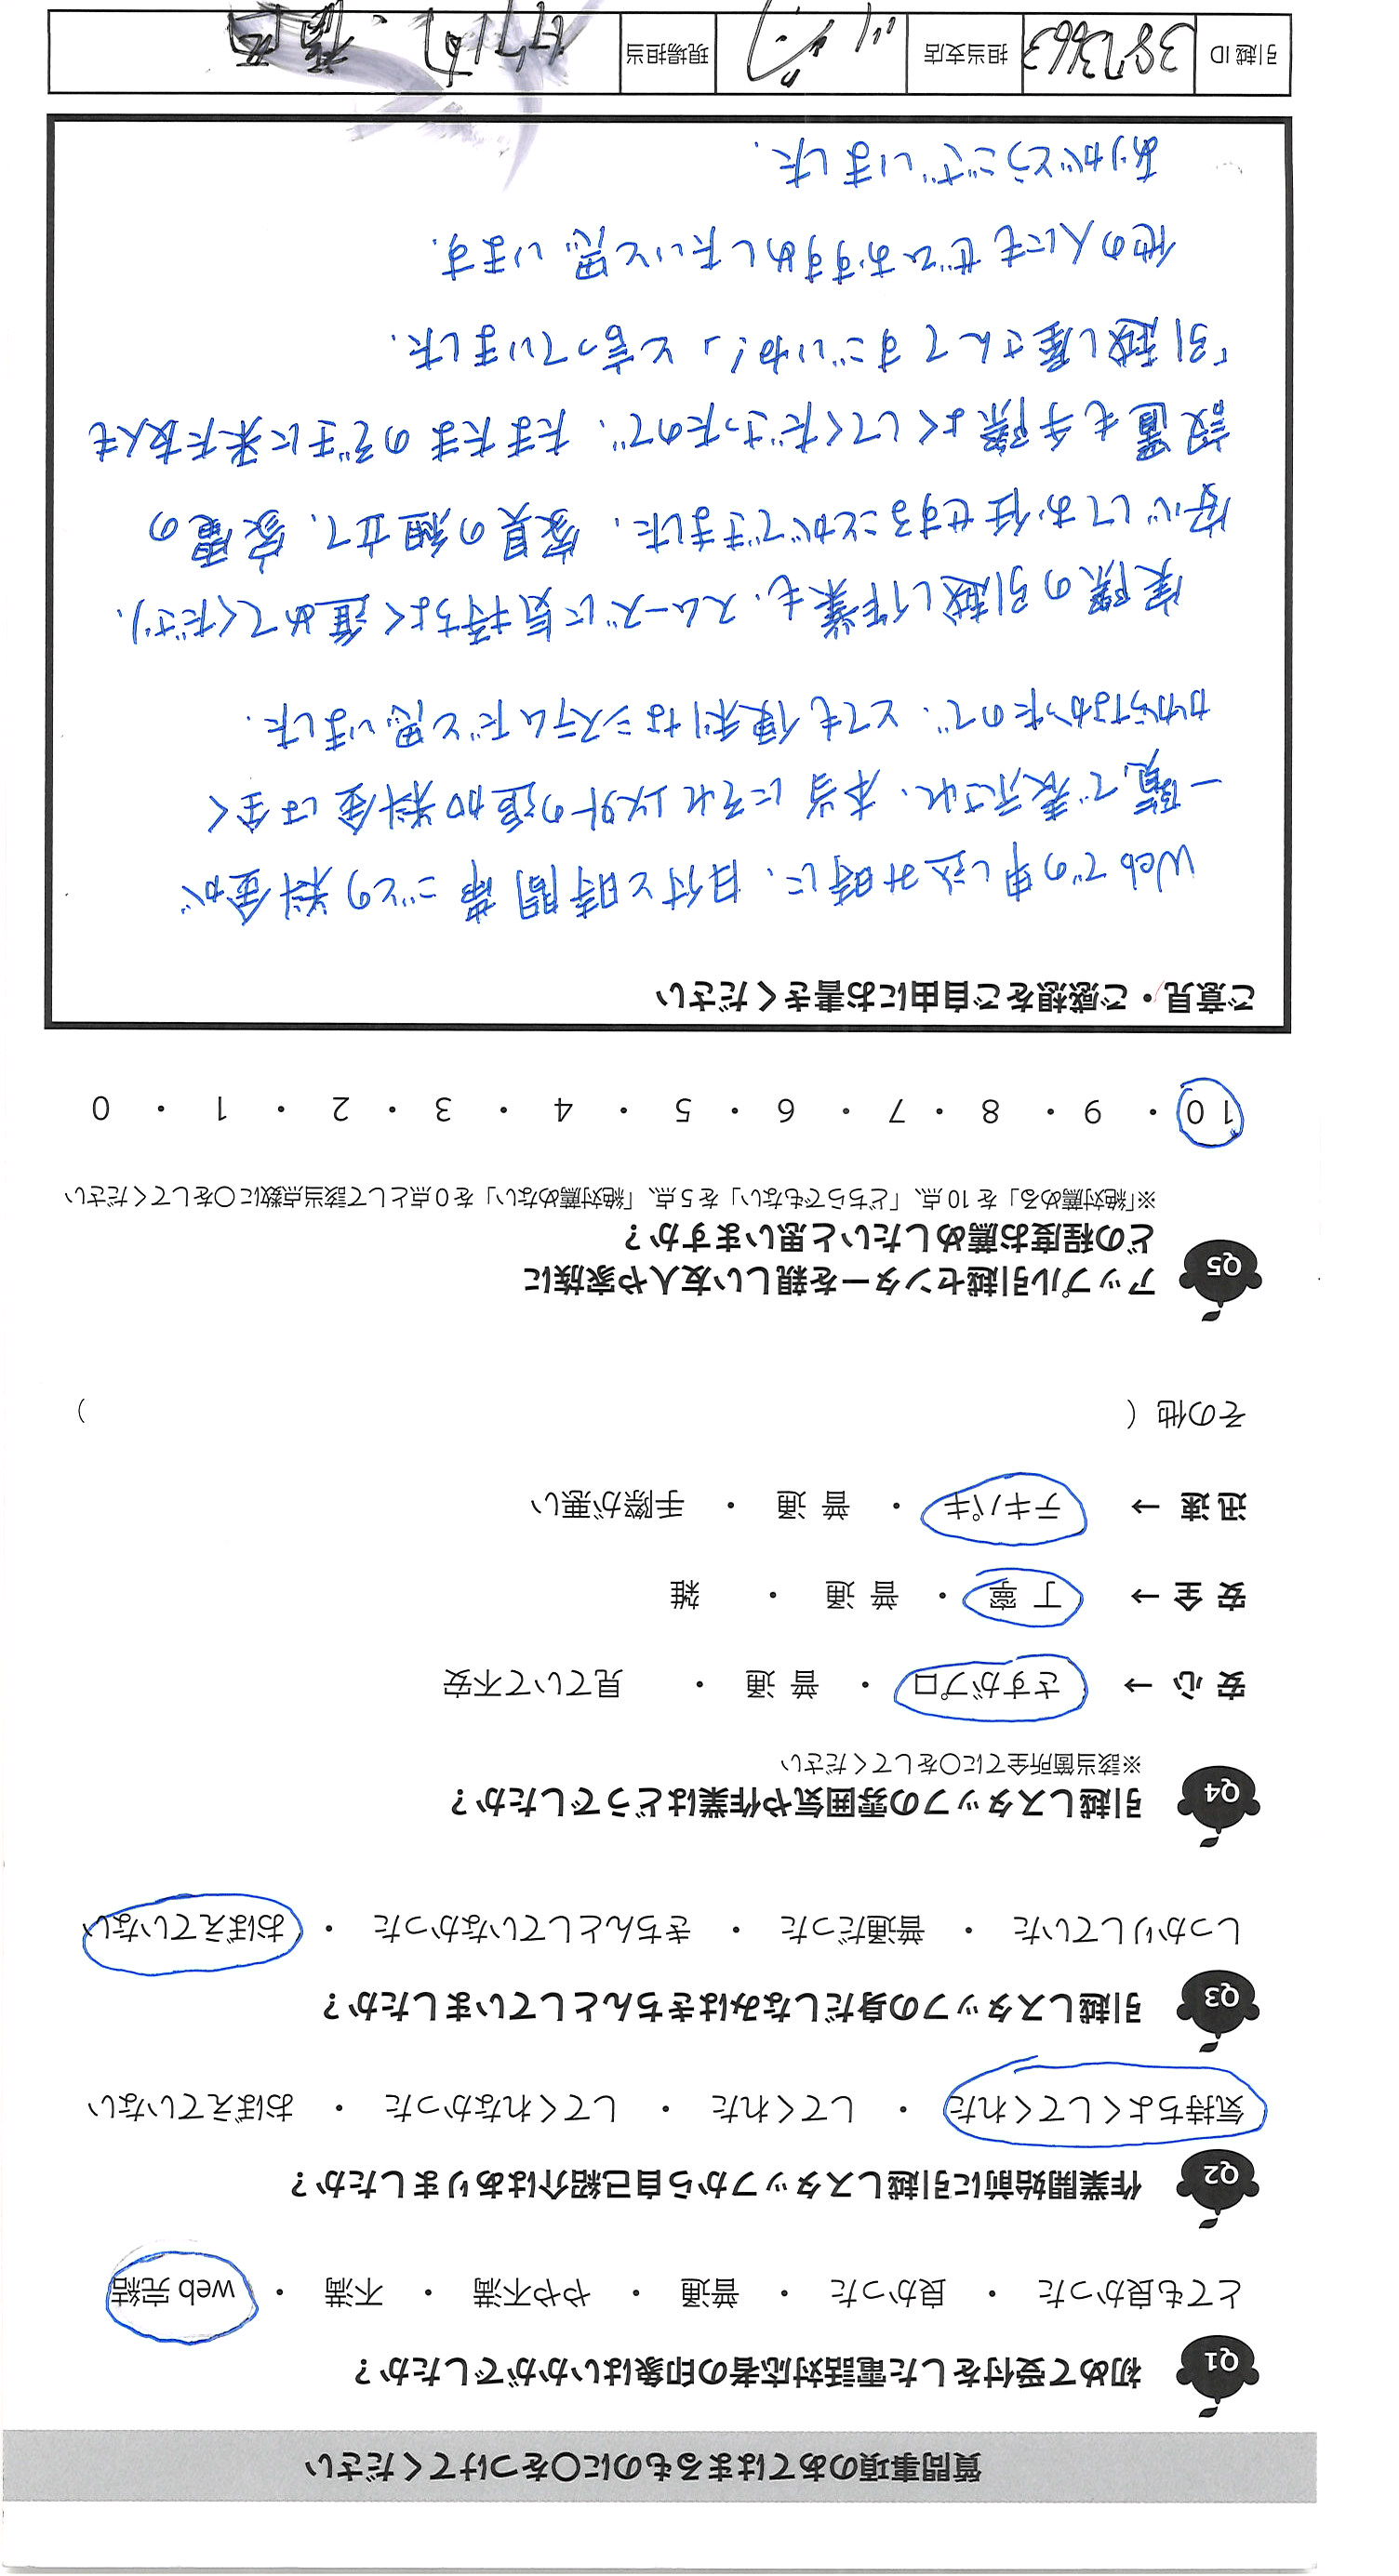 質問事項のあてはまるものに○をつけてください
Q1 初めて受付をした電話対応者の印象はいかがでしたか？
とても良かった ・ 良かった ・ 普通 ・ やや不満 ・ 不満 ・ web 完結
Q2 作業開始前に引越しスタッフから自己紹介はありましたか？
気持ちよくしてくれた ・ してくれた ・ してくれなかった ・ おぼえていない
Q3 引越しスタッフの身だしなみはきちんとしていましたか？
しっかりしていた ・ 普通だった ・ きちんとしていなかった ・ おぼえていない
Q4 引越しスタッフの雰囲気や作業はどうでしたか？
※該当箇所全てに○をしてください
安 心 → さすがプロ ・ 普 通 ・ 見ていて不安
安 全 → 丁 寧 ・ 普 通 ・ 雑
迅 速 → テキパキ ・ 普 通 ・ 手際が悪い
その他（ ）
Q5 アップル引越センターを親しい友人や家族に
どの程度お薦めしたいと思いますか？
※「絶対薦める」を 10 点、「どちらでもない」を 5 点、「絶対薦めない」を 0 点として該当点数に○をしてください
10 ・ 9 ・ 8 ・ 7 ・ 6 ・ 5 ・ 4 ・ 3 ・ 2 ・ 1 ・ 0
ご意見・ご感想をご自由にお書きください
Webでの申し込み時に、日付と時間帯ごとの料金が
一覧で表示され、本当にそれ以外の追加料金は全く
かからなかったので、とても便利なシステムだと思いました.
実際の引越し作業も、スムーズに気持ちよく進めてくださり、
安心してお任せすることができました. 家具の組立て、家電の
設置も手際よくしてくださったので、たまたまのぞきに来た友人も
「引越し屋さんてすごいね！」と言っていました.
他の人にもぜひおすすめしたいと思います.
ありがとうございました.
引越 ID 3873663 担当支店 現場担当